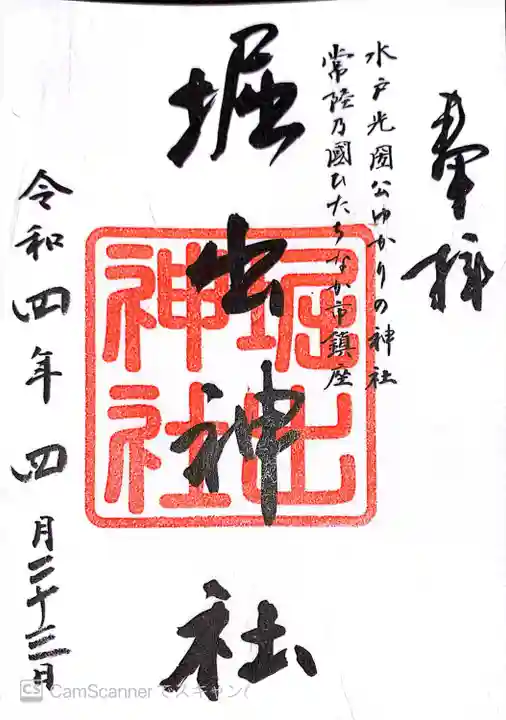 奉拝
水戸光圀公ゆかりの神社
常陸乃國ひたちなか市鎮座
堀出神社
堀出神社
令和四年 四月二十三日
CS CamScanner でスキャン